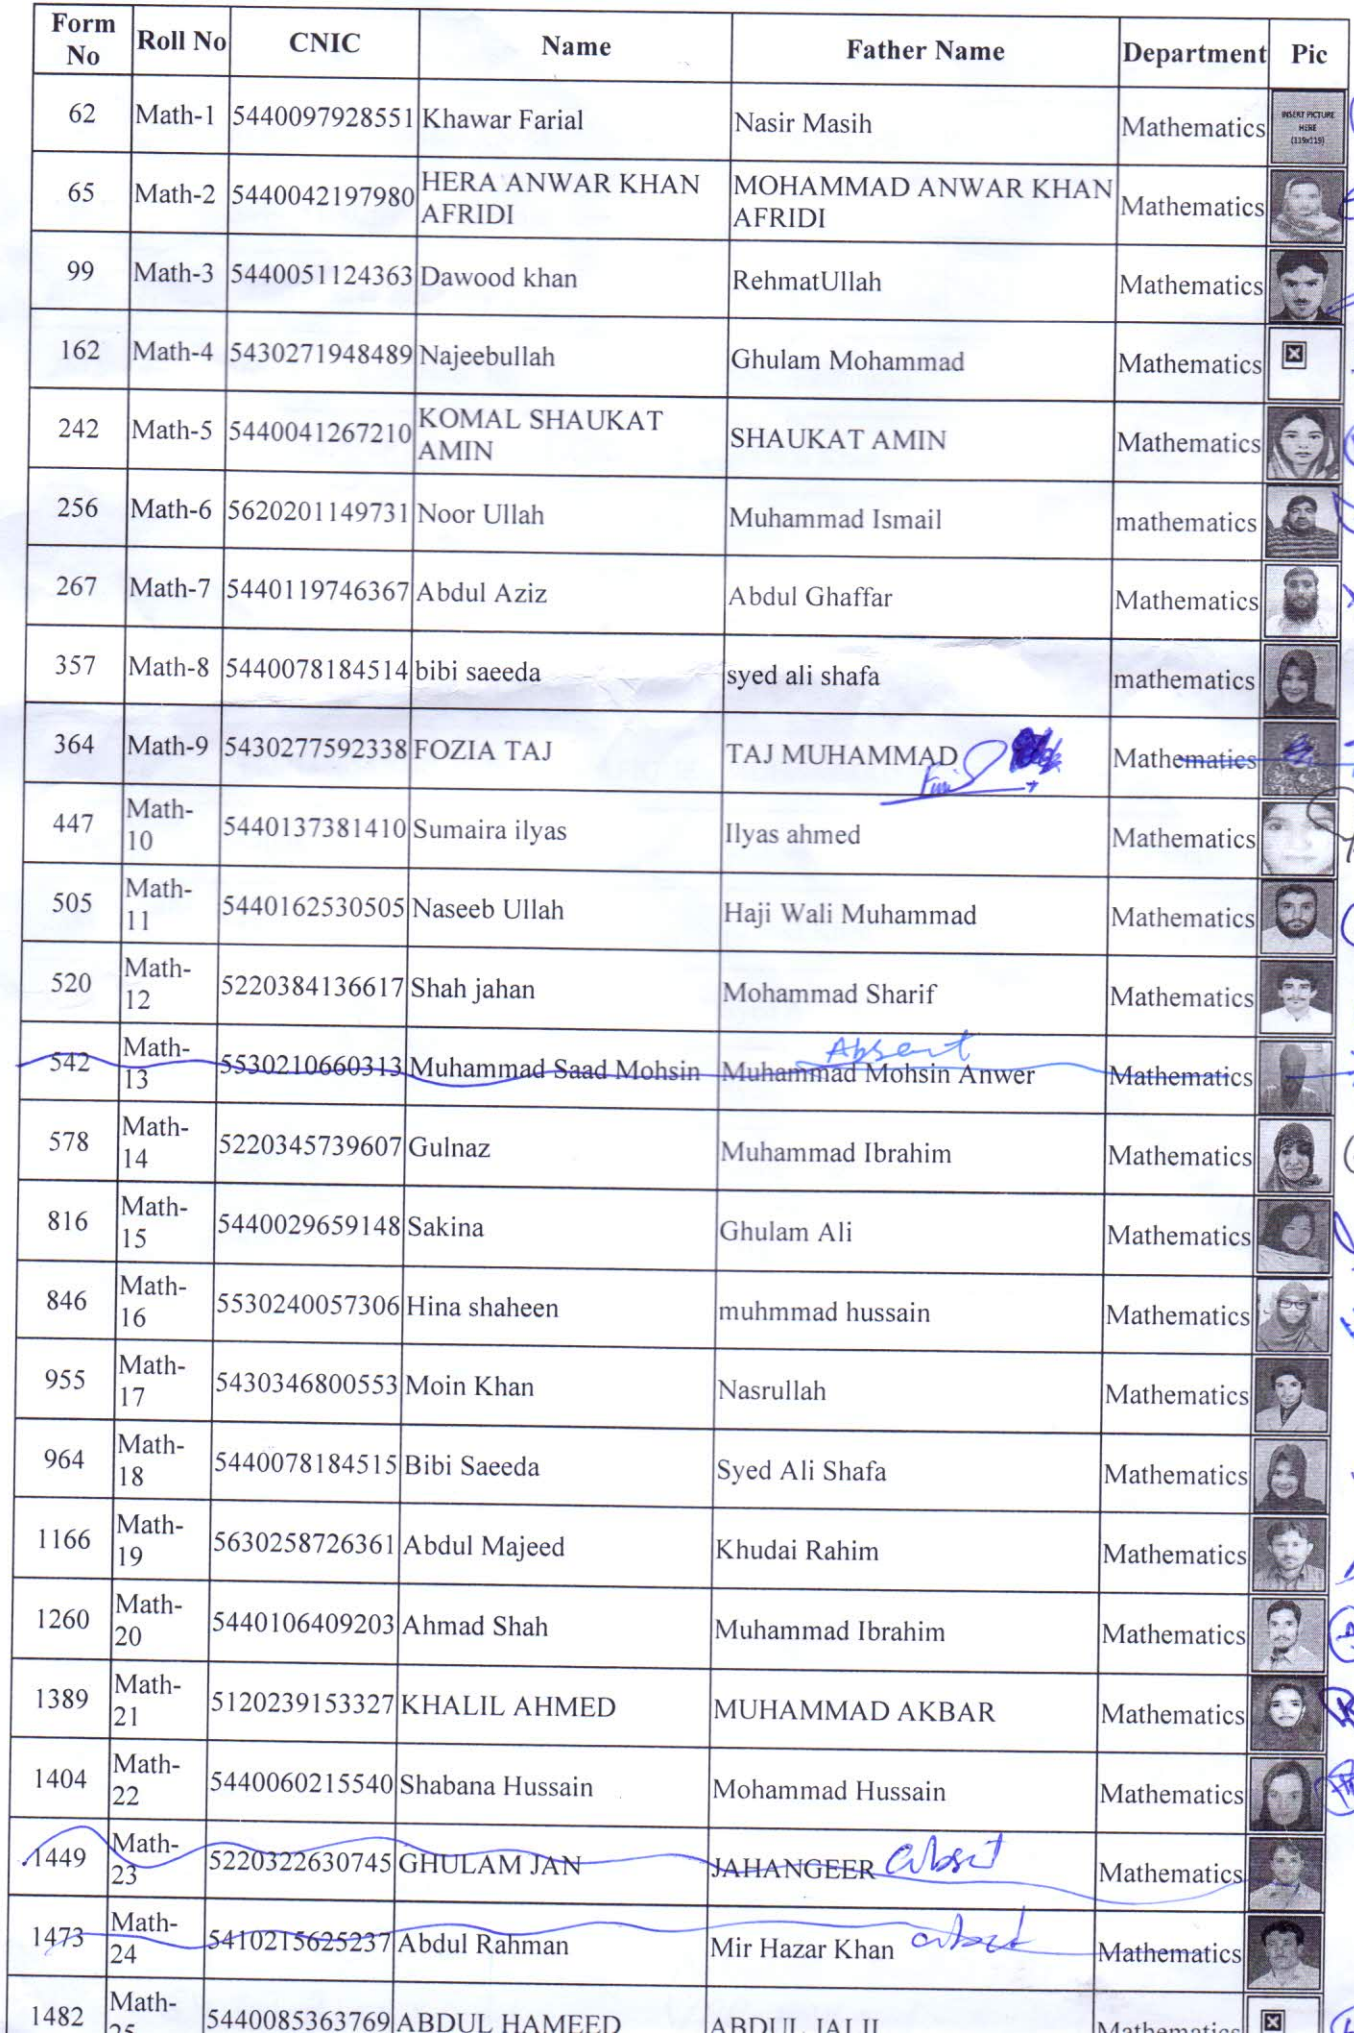 Form No Roll No CNIC Name Father Name Department Pic
62 Math-1 5440097928551 Khawar Farial Nasir Masih Mathematics INSERT PICTURE HERE (119x119)
65 Math-2 5440042197980 HERA ANWAR KHAN AFRIDI MOHAMMAD ANWAR KHAN AFRIDI Mathematics
99 Math-3 5440051124363 Dawood khan RehmatUllah Mathematics
162 Math-4 5430271948489 Najeebullah Ghulam Mohammad Mathematics
242 Math-5 5440041267210 KOMAL SHAUKAT AMIN SHAUKAT AMIN Mathematics
256 Math-6 5620201149731 Noor Ullah Muhammad Ismail mathematics
267 Math-7 5440119746367 Abdul Aziz Abdul Ghaffar Mathematics
357 Math-8 5440078184514 bibi saeeda syed ali shafa mathematics
364 Math-9 5430277592338 FOZIA TAJ TAJ MUHAMMAD Mathematics
447 Math-10 5440137381410 Sumaira ilyas Ilyas ahmed Mathematics
505 Math-11 5440162530505 Naseeb Ullah Haji Wali Muhammad Mathematics
520 Math-12 5220384136617 Shah jahan Mohammad Sharif Mathematics
542 Math-13 5530210660313 Muhammad Saad Mohsin Muhammad Mohsin Anwer Absent Mathematics
578 Math-14 5220345739607 Gulnaz Muhammad Ibrahim Mathematics
816 Math-15 5440029659148 Sakina Ghulam Ali Mathematics
846 Math-16 5530240057306 Hina shaheen muhmmad hussain Mathematics
955 Math-17 5430346800553 Moin Khan Nasrullah Mathematics
964 Math-18 5440078184515 Bibi Saeeda Syed Ali Shafa Mathematics
1166 Math-19 5630258726361 Abdul Majeed Khudai Rahim Mathematics
1260 Math-20 5440106409203 Ahmad Shah Muhammad Ibrahim Mathematics
1389 Math-21 5120239153327 KHALIL AHMED MUHAMMAD AKBAR Mathematics
1404 Math-22 5440060215540 Shabana Hussain Mohammad Hussain Mathematics
1449 Math-23 5220322630745 GHULAM JAN JAHANGEER absent Mathematics
1473 Math-24 5410215625237 Abdul Rahman Mir Hazar Khan absent Mathematics
1482 Math-25 5440085363769 ABDUL HAMEED ABDUL JALIL Mathematics